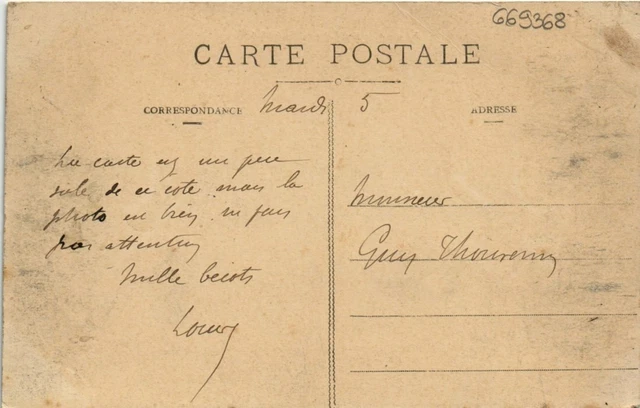 669368
CARTE POSTALE
CORRESPONDANCE
Mardi 5
ADRESSE
La carte est un peu
sale de ce coté mais la
photo est bien ne fais
pas attention
Mille becots
Monsieur
Guy